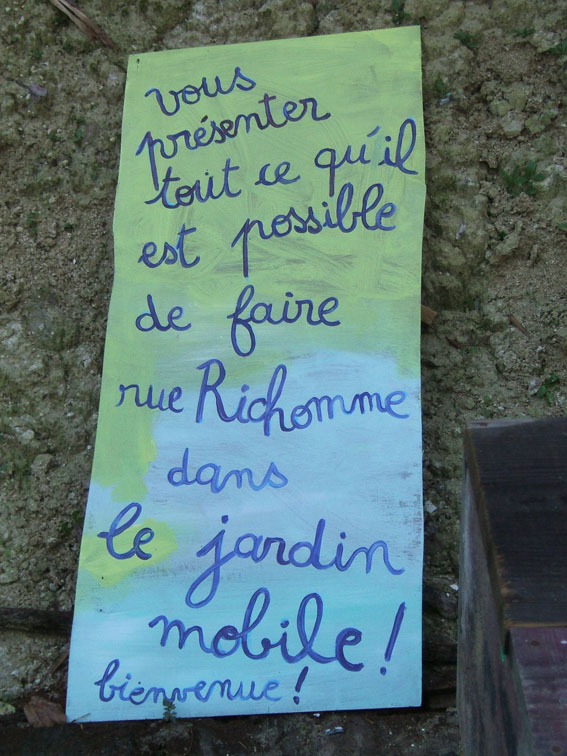 vous
présenter
tout ce qu'il
est possible
de faire
rue Richomme
dans
le jardin
mobile!
bienvenue!